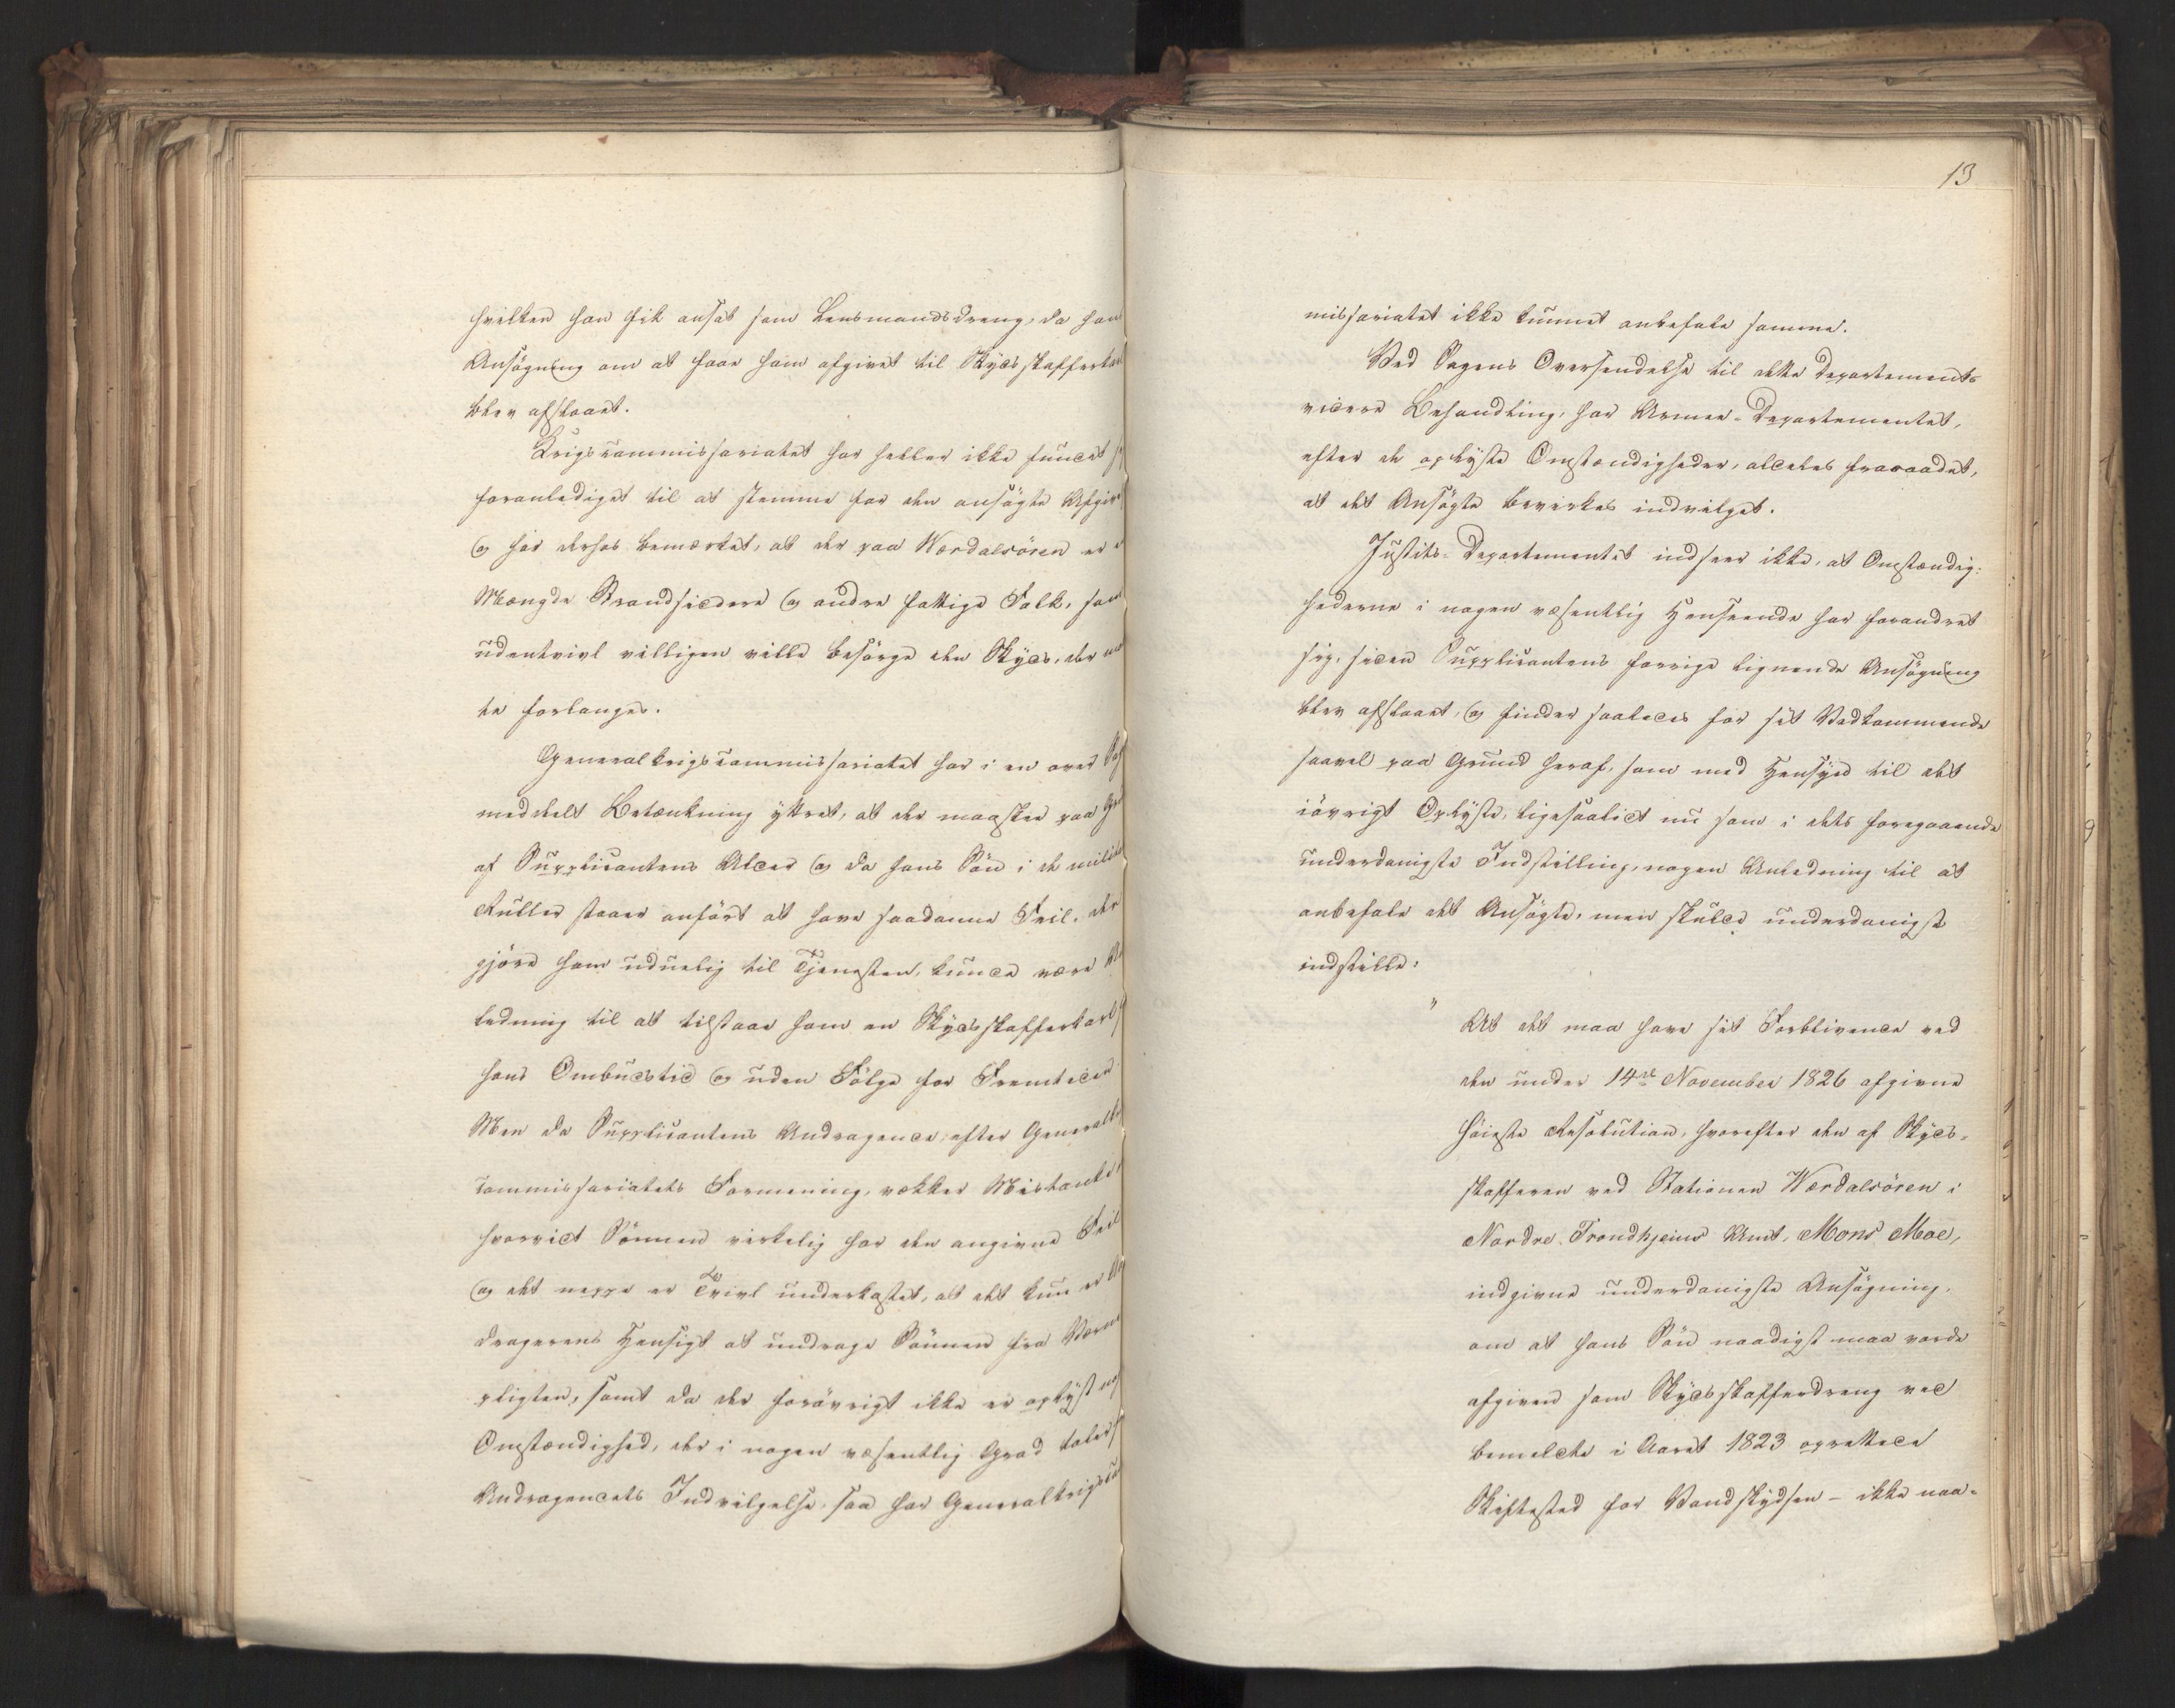 hvilken han fik ansat som Lensmandsdreng, da hans
Ansøgning om at faae ham afgivet til Skydsskafferkarl
blev afslaaet.
Krigscommissariatet har heller ikke fundet sig
foranlediget til at stemme for den ansøgte Afgivelse
og har derhos bemærket, at der paa Værdalsøren er en
Mængde Strandsiddere og andre fattige Folk, som
udentvivl villigen ville besørge den Skyds, der maat-
te forlanges.
Generalkrigscommissariatet har i en over Sagen
meddelt Betænkning yttret, at der maaskee paa Grund
af Supplicantens Alder og da hans Søn i de militaire
Ruller staaer anført at have saadanne Feil, der
gjøre ham uduelig til Tjenesten, kunde være An-
ledning til at tilstaae ham en Skydsskafferkarl i
hans Ombudstid og uden Følge for Fremtiden.
Men da Supplicantens Andragende, efter Generalkrigs-
commissariatets Formening, vækker Mistanke,
hvorvidt Sønnen virkelig har den angivne Feil
og det neppe er Tvivl underkastet, at det kun er An-
dragerens Hensigt at unddrage Sønnen fra Værne-
pligten, samt da der forøvrigt ikke er oplyst nogen
Omstændighed, der i nogen væsentlig Grad taler for
Andragendets Indvilgelse, saa har Generalkrigscom-
13
missariatet ikke kunnet anbefale samme.
Ved Sagens Oversendelse til dette Departements
videre Behandling, har Armee-Departementet,
efter de oplyste Omstændigheder, aldeles fraraadet,
at det Ansøgte bevirkes indvilget.
Justits-Departementet indseer ikke, at Omstændig-
hederne i nogen væsentlig Henseende har forandret
sig, siden Supplicantens forrige lignende Ansøgning
blev afslaaet, og finder saaledes for sit Vedkommende
saavel paa Grund heraf, som med Hensyn til det
iøvrigt Oplyste, ligesaalidt nu som i dets foregaaende
underdanigste Indstilling, nogen Anledning til at
anbefale det Ansøgte, men skulde underdanigst
indstille:
" At det maa have sit Forblivende ved
den under 14de November 1826 afgivne
høieste Resolution, hvorefter den af Skyds-
skafferen ved Stationen Værdalsøren i
Nordre Trondhjems Amt, Mons Moe,
indgivne underdanigste Ansøgning,
om at hans Søn naadigst maa vorde
afgiven som Skydsskafferdreng ved
bemeldte i Aaret 1823 oprettede
Skiftested for Vandskydsen - ikke naa-